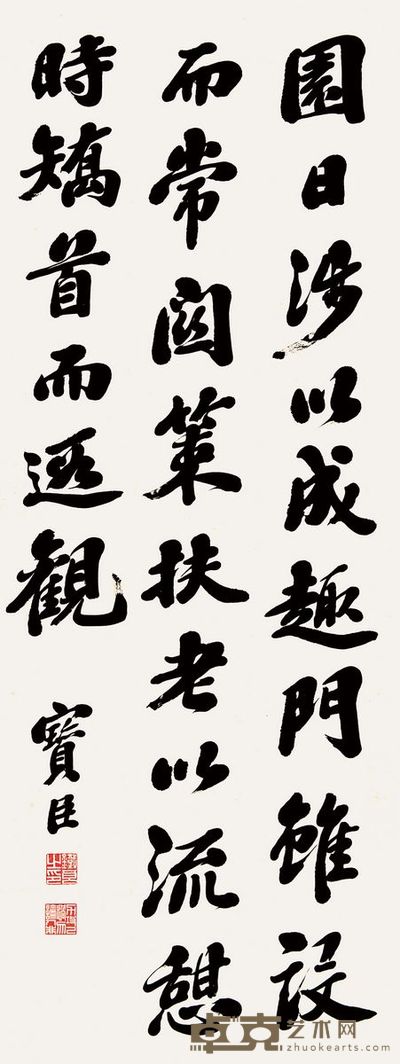 園日涉以成趣門雖設
而常關策扶老以流憩
時矯首而遐觀
寶臣
卓克艺术网
zhuokearts.com